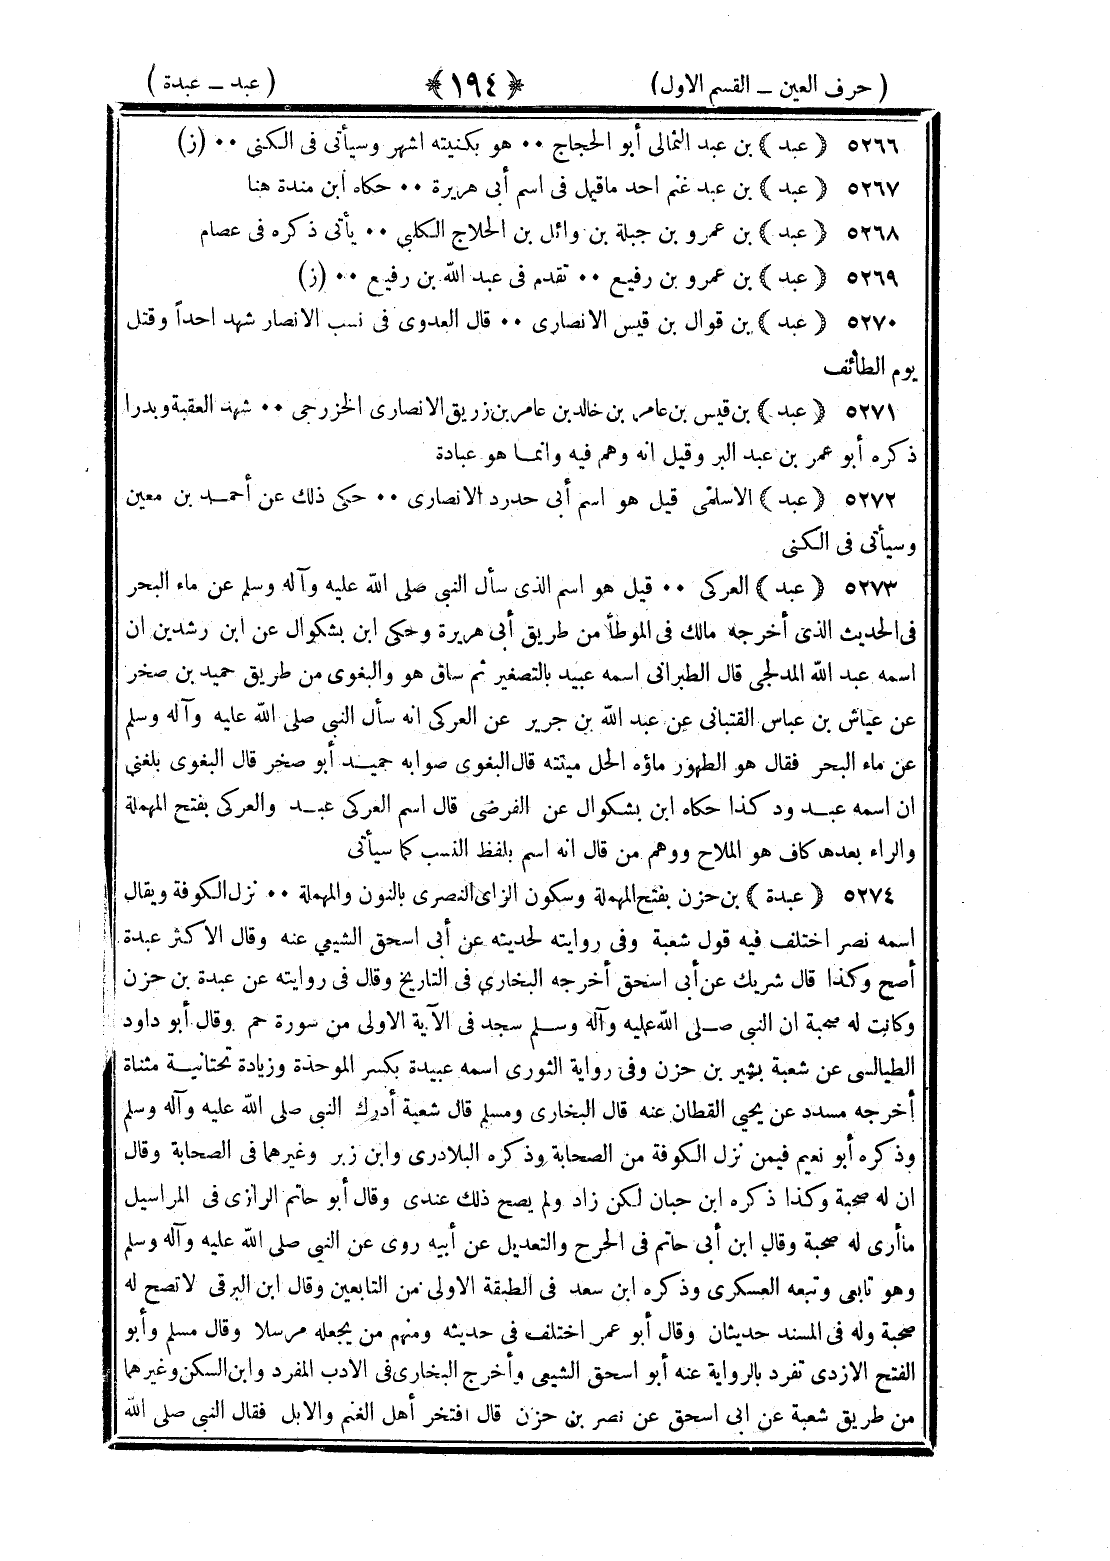 ( حرف العين ــ القسم الاول) ﴿ ١٩٤ ﴾ ( عبد ــ عبدة )
٥٢٦٦ ﴿ عبد ﴾ بن عبد الثمالى أبو الحجاج ٠٠ هو بكنيته اشهر وسيأتى فى الكنى ٠٠ (ز)
٥٢٦٧ ﴿ عبد ﴾ بن عبد غنم احد ماقيل فى اسم أبى هريرة ٠٠ حكاه ابن مندة هنا
٥٢٦٨ ﴿ عبد ﴾ بن عمرو بن جبلة بن وائل بن الحلاج الكلبي ٠٠ يأتى ذكره فى عصام
٥٢٦٩ ﴿ عبد ﴾ بن عمرو بن رفيع ٠٠ تقدم فى عبد الله بن رفيع ٠٠ (ز)
٥٢٧٠ ﴿ عبد ﴾ بن قوال بن قيس الانصارى ٠٠ قال العدوى فى نسب الانصار شهد احداً وقتل
يوم الطائف
٥٢٧١ ﴿ عبد ﴾ بن قيس بن عامر بن خالد بن عامر بن زريق الانصارى الخزرجى ٠٠ شهد العقبة وبدرا
ذكره أبو عمر بن عبد البر وقيل انه وهم فيه وانما هو عبادة
٥٢٧٢ ﴿ عبد ﴾ الاسلمى قيل هو اسم أبى حدرد الانصارى ٠٠ حكى ذلك عن أحمد بن معين
وسيأتى فى الكنى
٥٢٧٣ ﴿ عبد ﴾ العركى ٠٠ قيل هو اسم الذى سأل النبي صلى الله عليه وآله وسلم عن ماء البحر
فى الحديث الذى أخرجه مالك فى الموطأ من طريق أبى هريرة وحكى ابن بشكوال عن ابن رشدين ان
اسمه عبد الله المدلجى قال الطبرانى اسمه عبيد بالتصغير ثم ساق هو والبغوى من طريق حميد بن صخر
عن عياش بن عباس القتبانى عن عبد الله بن جرير عن العركى انه سأل النبي صلى الله عليه وآله وسلم
عن ماء البحر فقال هو الطهور ماؤه الحل ميتته قال البغوى صوابه حميد أبو صخر قال البغوى بلغني
ان اسمه عبد ود كذا حكاه ابن بشكوال عن الفرضى قال اسم العركى عبد والعركى بفتح المهملة
والراء بعدها كاف هو الملاح ووهم من قال انه اسم بلفظ النسب كما سيأتى
٥٢٧٤ ﴿ عبدة ﴾ بن حزن بفتح المهملة وسكون الزاى النصرى بالنون والمهملة ٠٠ نزل الكوفة ويقال
اسمه نصر اختلف فيه قول شعبة وفى روايته لحديثه عن أبى اسحق الشيمي عنه وقال الاكثر عبدة
أصح وكذا قال شريك عن أبى اسحق أخرجه البخارى فى التاريخ وقال فى روايته عن عبدة بن حزن
وكانت له صحبة ان النبي صلى الله عليه وآله وسلم سجد فى الآية الاولى من سورة حم وقال أبو داود
الطيالسى عن شعبة بشير بن حزن وفى رواية الثورى اسمه عبيدة بكسر الموحدة وزيادة تحتانية مثناة
أخرجه مسدد عن يحيى القطان عنه قال البخارى ومسلم قال شعبة أدرك النبي صلى الله عليه وآله وسلم
وذكره أبو نعيم فيمن نزل الكوفة من الصحابة وذكره البلادرى وابن زبر وغيرهما فى الصحابة وقال
ان له صحبة وكذا ذكره ابن حبان لكن زاد ولم يصح ذلك عندى وقال أبو حاتم الرازى فى المراسيل
ماأرى له صحبة وقال ابن أبى حاتم فى الجرح والتعديل عن أبيه روى عن النبي صلى الله عليه وآله وسلم
وهو تابعى وتبعه العسكرى وذكره ابن سعد فى الطبقة الاولى من التابعين وقال ابن البرقى لاتصح له
صحبة وله فى المسند حديثان وقال أبو عمر اختلف فى حديثه ومنهم من يجعله مرسلا وقال مسلم وأبو
الفتح الازدى تفرد بالرواية عنه أبو اسحق الشيمى وأخرج البخارى فى الادب المفرد وابن السكن وغيرهما
من طريق شعبة عن ابى اسحق عن نصر بن حزن قال افتخر أهل الغنم والابل فقال النبي صلى الله